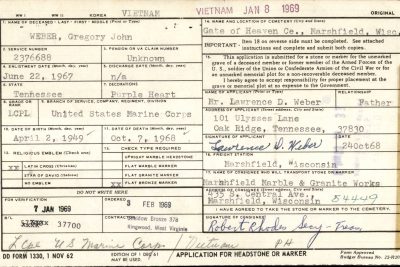 WW I WW II KOREA VIETNAM
VIETNAM JAN 8 1969
ORIGINAL
1. NAME OF DECEASED - LAST - FIRST - MIDDLE (Print or Type)
WEBER, Gregory John
14. NAME AND LOCATION OF CEMETERY (City and State)
Gate of Heaven Co., Marshfield, Wisc.
Item 18 on reverse side must be completed. See attached instructions and complete and submit both copies.
2. SERVICE NUMBER
2376688
3. PENSION OR VA CLAIM NUMBER
Unknown
4. ENLISTMENT DATE
June 22, 1967
5. DISCHARGE DATE
n/a
6. STATE
Tennessee
Purple Heart
15. This application is submitted for a stone or marker for the unmarked grave of a deceased member or former member of the Armed Forces of the U.S., soldier of the Union or Confederate Armies of the Civil War or for an unmarked memorial plot for a non-recoverable deceased member.
I hereby agree to accept responsibility for proper placement at the grave or memorial plot at no expense to the Government.
RELATIONSHIP
Mr. Lawrence D. Weber Father
101 Ulysses Lane
Oak Ridge, Tennessee, 37830
8. GRADE OR RANK
LCPL
9. BRANCH OF SERVICE, COMPANY, REGIMENT, DIVISION
United States Marine Corps
10. DATE OF BIRTH
April 2, 1949
11. DATE OF DEATH
Oct. 7, 1968
SIGNATURE OF APPLICANT
Lawrence D. Weber
DATE
24Oct68
RELIGIOUS EMBLEM (Check one)
CHECK TYPE REQUIRED
XX LATIN CROSS (Christian)
STAR OF DAVID (Hebrew)
NO EMBLEM
UPRIGHT MARBLE HEADSTONE
FLAT MARBLE MARKER
FLAT GRANITE MARKER
XX FLAT BRONZE MARKER
16. FREIGHT STATION
Marshfield, Wisconsin
17. NAME OF CONSIGNEE WHO WILL TRANSPORT STONE OR MARKER
Marshfield Marble & Granite Works
435 S. Central Ave.
Marshfield, Wisconsin 54449
DO NOT WRITE HERE
FOR VERIFICATION
7 JAN 1969
ORDERED
3 FEB 1969
37700
Kingwood, West Virginia
I HAVE AGREED TO TAKE THE STONE OR MARKER TO THE CEMETERY.
SIGNATURE OF CONSIGNEE
Robert Rhodes Secy-Treas
LCpl US Marine Corps / Vietnam PH
DD FORM 1330, 1 NOV 62
APPLICATION FOR HEADSTONE OR MARKER
Form Approved